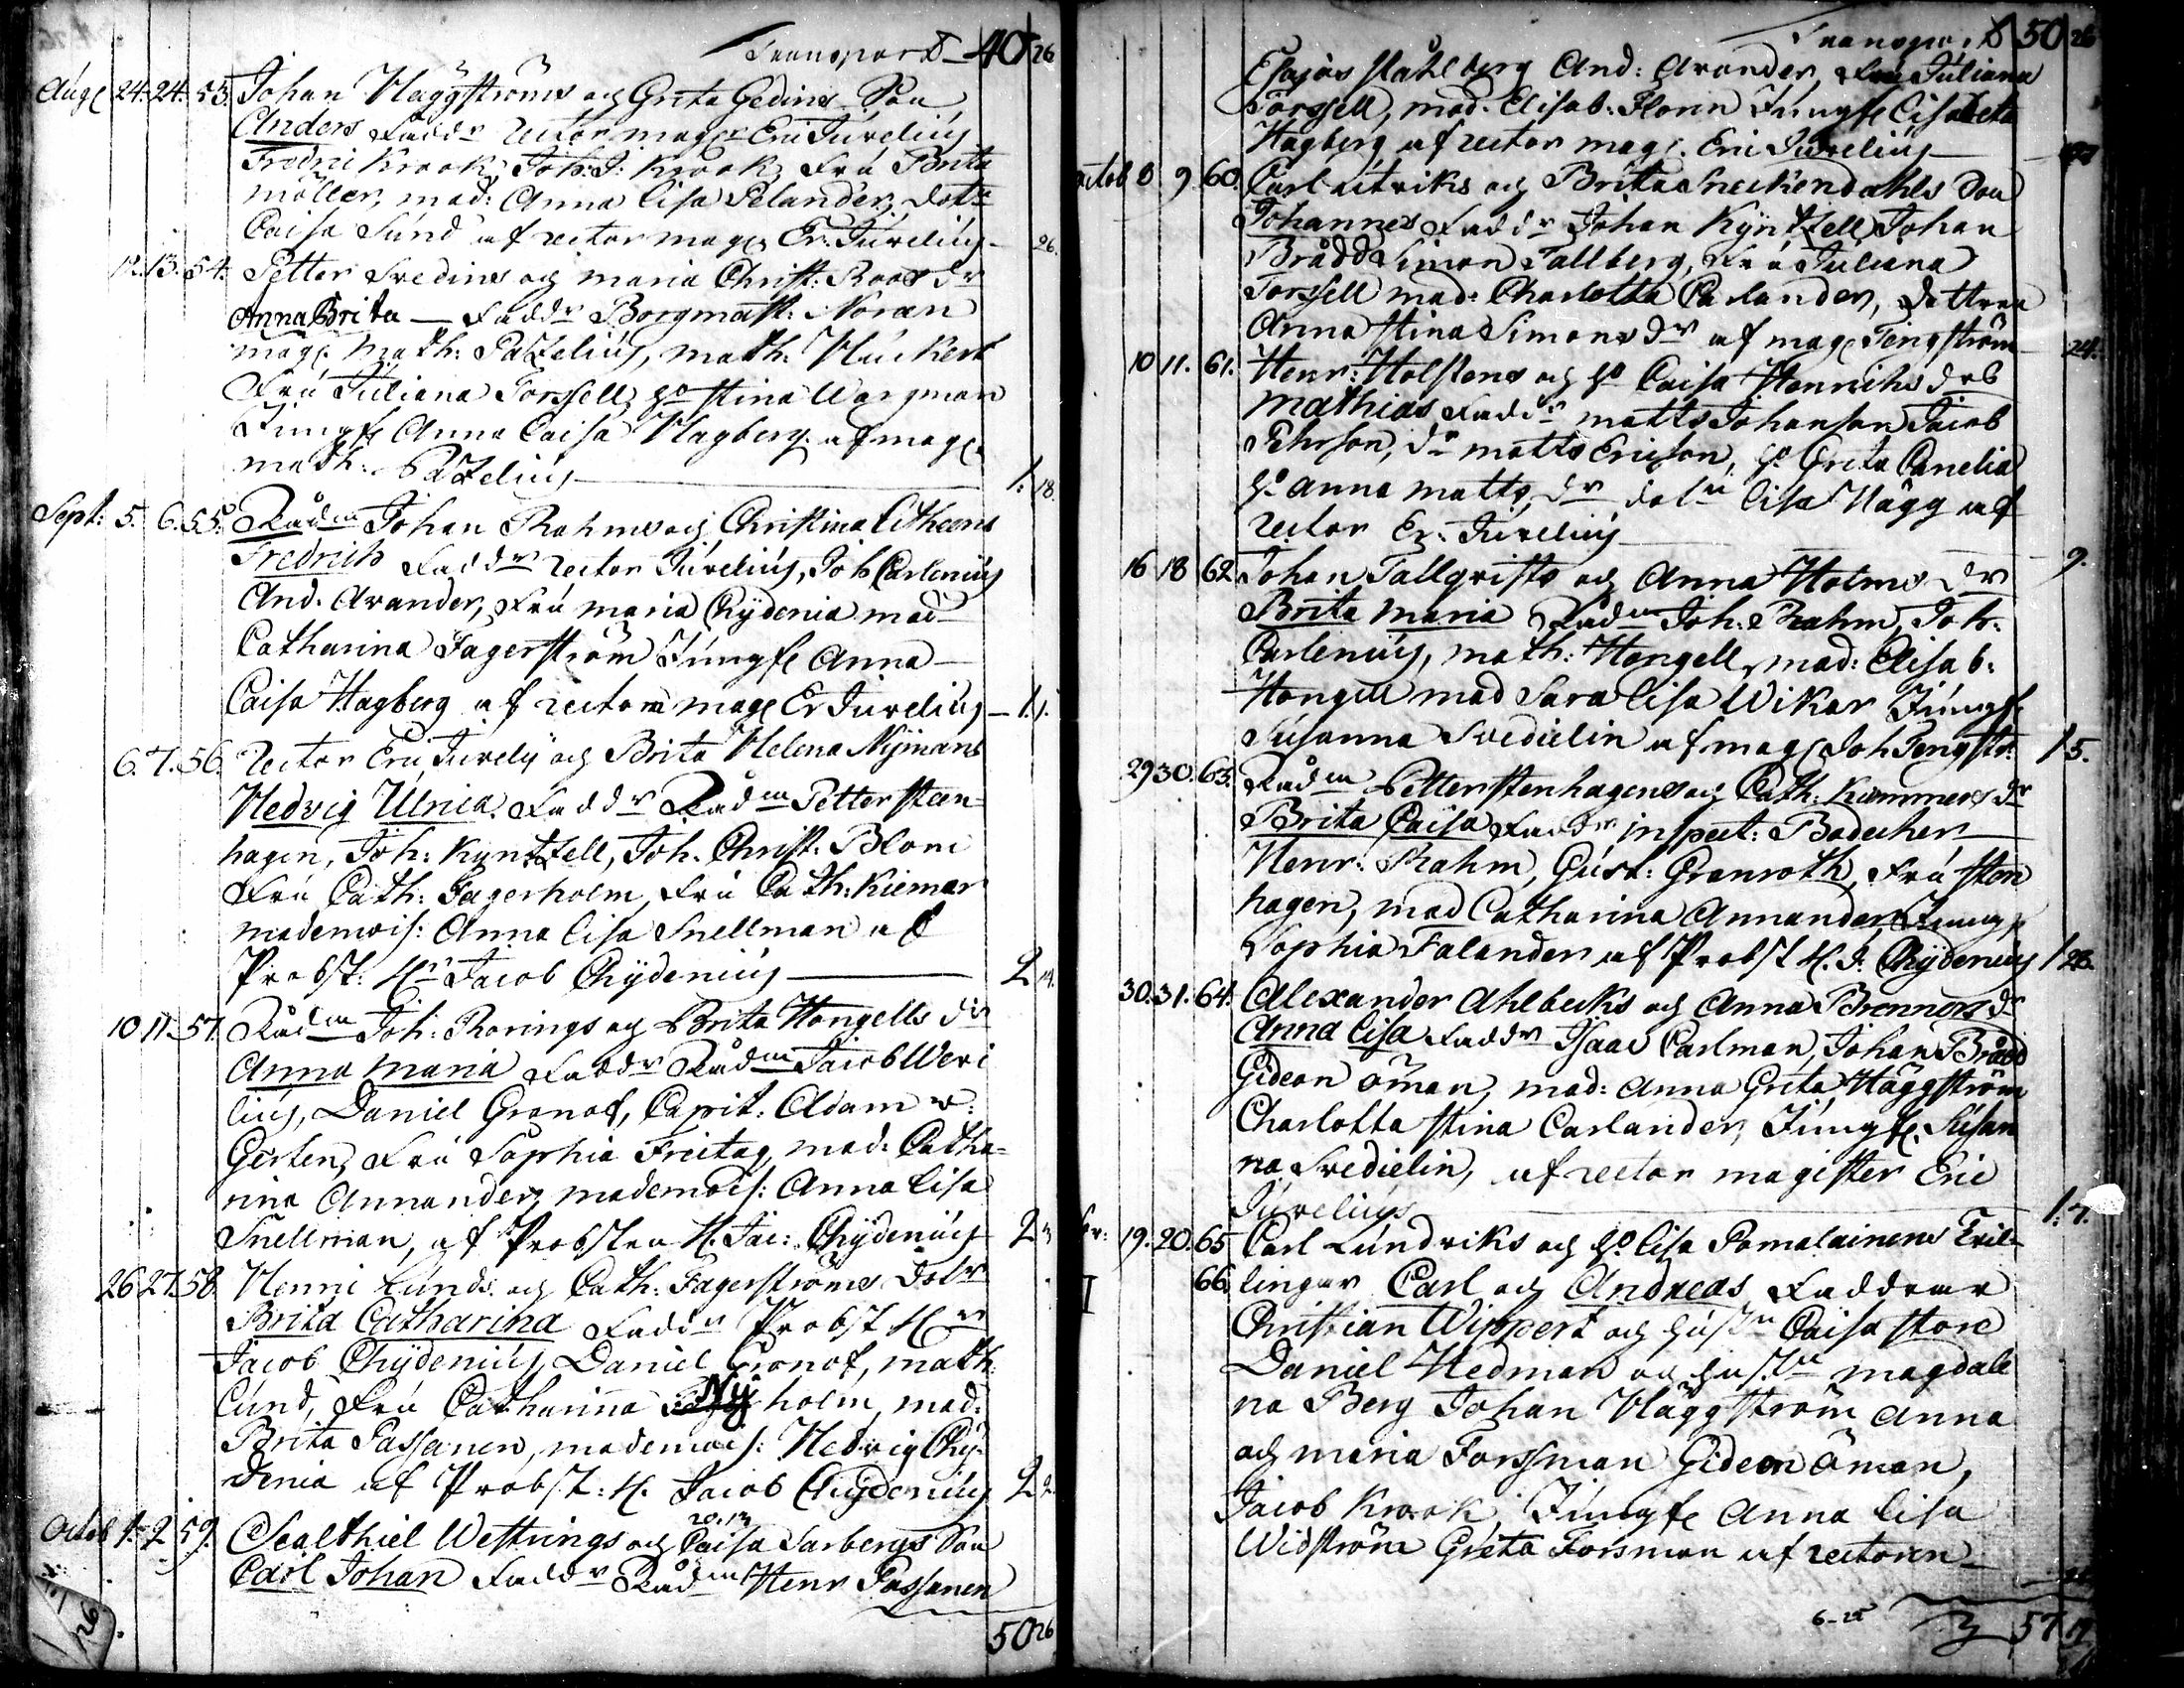 Transport 40 26
Aug 24. 24. 53. Johan Häggströms och Greta Gedins Son
Anders Faddr Rector mag Eric Jurelius
Fredric Krook, Joh: J: Krook, Fru Brita
Möller, mad: Anna Lisa Pelander, dotr
Caisa Sund af rector mag Er. Jurelius 26.
12. 13. 54. Petter Svedins och Maria Christ: Roos dr
Anna Brita — Faddr Borgmäst: Noræn
mag. Math: Pazelius, Math: Häckert
Fru Juliana Forssell, ho Stina Wargman
Jungf. Anna Caisa Hagberg af mag
Math: Pazelius 1. 18.
Sept: 5. 6. 55. Rådm Johan Rahms och Christina Litheens
Fredrich Faddr rector Jurelius, Joh Carlenius
And. Arander, Fru Maria Chydenia mad
Catharina Fagerström Jungf Anna
Caisa Hagberg af rectorn mag Er Jurelius 1. 1.
6. 7. 56. Rector Eric Jurelii och Brita Helena Nymans
Hedvig Ulrica. Faddr Rådm Petter Steen-
hagen, Joh: Kyntzell, Joh. Christ. Blom
Fru Cath: Fagerholm, Fru Cath: Kiemer
mademois: Anna Lisa Snellman af
Probst: Hr Jacob Chydenius 2 14.
10 11. 57. Rådm Joh: Rorings och Brita Hongells dr
Anna Maria Faddr Rådm Jacob Weri
lius, Daniel Gronof, Capit: Adam v:
Gerten, Fru Sophia Freitag, mad: Catha-
rina Annander, mademois: Anna Lisa
Snellman, af Probsten H. Jac: Chydenius 2
26 27. 58. Henric Lunds och Cath: Fagerströms dotr
Brita Catharina Faddr Probst Hr
Jacob Chydenius, Daniel Gronof, Math:
Lund, Fru Catharina Nyholm, mad:
Brita Passanen, mademois: Hedvig Chy-
denia af Probst: H. Jacob Chydenius 2
20.13
Octob 1. 2 59. Sealthiel Westrings och Caisa Sarbergs Son
Carl Johan Faddr Rådm Henr Passanen
50 26
26
Transport 50 26
Esajas Ståhlberg And: Arander, Fru Juliana
Forssell, mad. Elisab: Florin Jungf Lisabeta
Hagberg af rector mag. Eric Jurelius
Octob 8 9. 60. Carl Östriks och Brita Sneckendahls Son
Johannes Faddr Johan Kyntzell Johan
Brådd Simon Tallberg, Fru Juliana
Forssell mad: Charlotta Carlander, dottren
Anna Stina Simons dr af mag Tengström 24.
10 11. 61. Henr: Holstens och ho Caisa Henrichs drs
Mathias Faddr Matts Johanson Jacob
Pehrson, dr Matts Ericson, ho Greta Canelia
ho Anna Matts dr dotn Lisa Hägg af
rector Er. Jurelius 9.
16 18 62. Johan Tallqvists och Anna Holms dr
Brita Maria Rådm Joh: Rahm, Joh.
Carlenius, Math: Hongell, mad: Elisab:
Hongell mad Sara Lisa Wikar Jungf
Susanna Svedielin af mag Joh Tengstr. 1 5.
29 30. 63. Rådm Petter Stenhagens och Cath: Kummers dr
Brita Caisa Faddr inspect: Badecher
Henr: Rahm, Gust: Granroth, Fru Sten
hagen, mad Catharina Annander, Jungf
Sophia Falander af Probst H. J: Chydenius 1 28.
30. 31. 64. Alexander Ahlbecks och Anna Brenners dr
Anna Lisa Faddr Isaac Carlman, Johan Brådd
Gideon Öman, mad: Anna Greta Häggström
Charlotta Stina Carlander, Jungf. Susan
na Svedielin, af rector magister Eric
Jurelius 1. 7.
19. 20. 65 Carl Lundriks och ho Lisa Pomalainens Tvil-
66 lingar Carl och Andreas Faddrar
Christian Wippert och hustru Caisa Store
Daniel Hedman och hustru Magdale
na Berg Johan Häggström Anna
och Maria Forssman Gideon Öman,
Jacob Krook, Jungf Anna Lisa
Widström Greta Forsman af rectoren
6-25 57